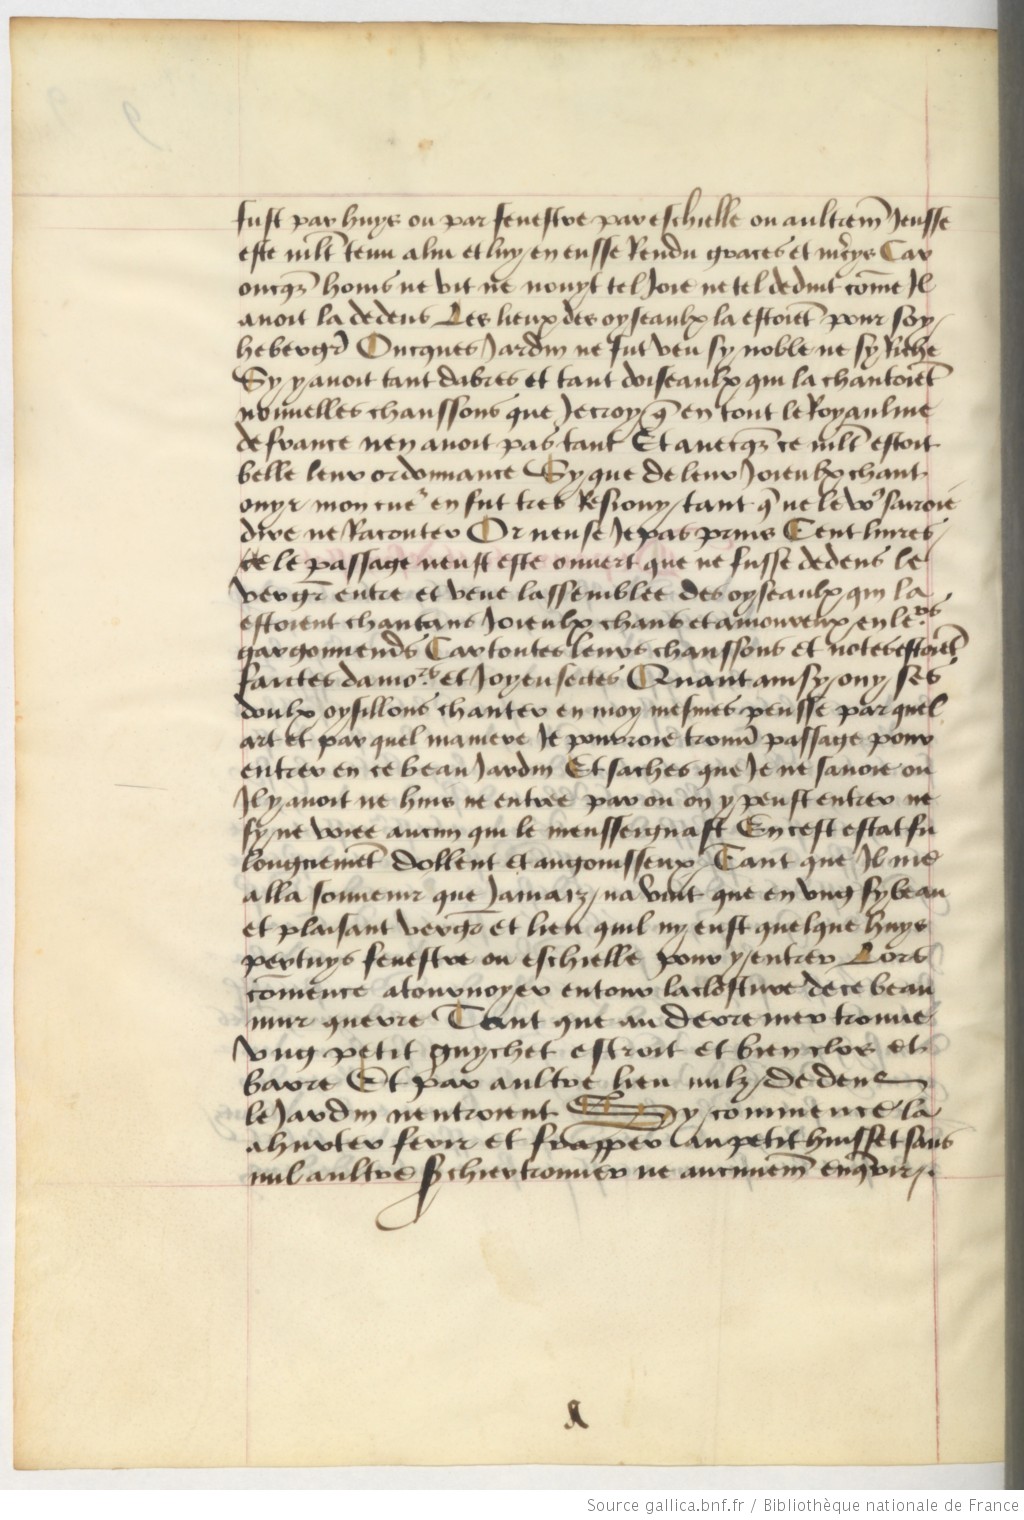 fust par huys ou par fenestre par eschielle ou aultrem̄ Jeusse
este mlt̄ tenu a lui et luy en eusse Rendu graces et m̄cys Car
oncq̄s homs ne vit ne nouyt tel Joie ne tel deduit com̄e Jl
auoit la dedens Les lieux des oyseaulx la estoiēt pour soy
hebergr̄ Oncques Jardin ne fut veu sy noble ne sy Riche
Sy y auoit tant dabres et tant doiseaulx qui la chantoiēt
nouuelles chanssons que Je croy q̄ en tout le Royaulme
de france nen auoit pas tant Et auecq̄s ce mlt̄ estoit
belle leur ordonnance Sy que de leur Joieulx chant
ouyr mon cue' en fut tres Resiouy tant q̄ ne le vo9 sauroie
dire ne Raconter Or neuse Je pas prins Cent liures
se le passage neust este ouuert que ne fusse dedens le
vergr̄ entre et veue lassemblee des oyseaulx qui la
estoient chantans Joieulx chans et amoureux en le'rs
gargonnends Car toutes leurs chanssons et notes estoiēt
faictes damo'rs et Joyeusetes Quant ainsy ouy ses
doulx oysillons chanter en moy mesmes pensse par quel
art et par quel maniere Je pourroie trouū passage pour
entrer en ce beau Jardin Et saches que Je ne sauoie ou
Jl y auoit ne huis ne entree par ou on y peust entrer ne
sy ne voiee aucun qui le mensseignast En cest estat fu
longuemēt dollent et angoisseux Tant que Jl me
alla souuenir que Jamaiz na voit que en vng sy beau
et plaisant vergr̄ et lieu quil ny eust quelque huys
pertuys fenestre ou eschielle pour y entrer Lors
com̄ence a tournoyer entour la closture de ce beau
mur querre Tant que au derrenier trouue
vng petit guychet estroit et bien clos et
barre Et par aultre lieu nulz dedens
le Jardin nentroient Sy y commence la
a hurter ferir et frapper au petit huisset sans
nul aultre sy chier trouuer ne aucunem̄ enq̄rir